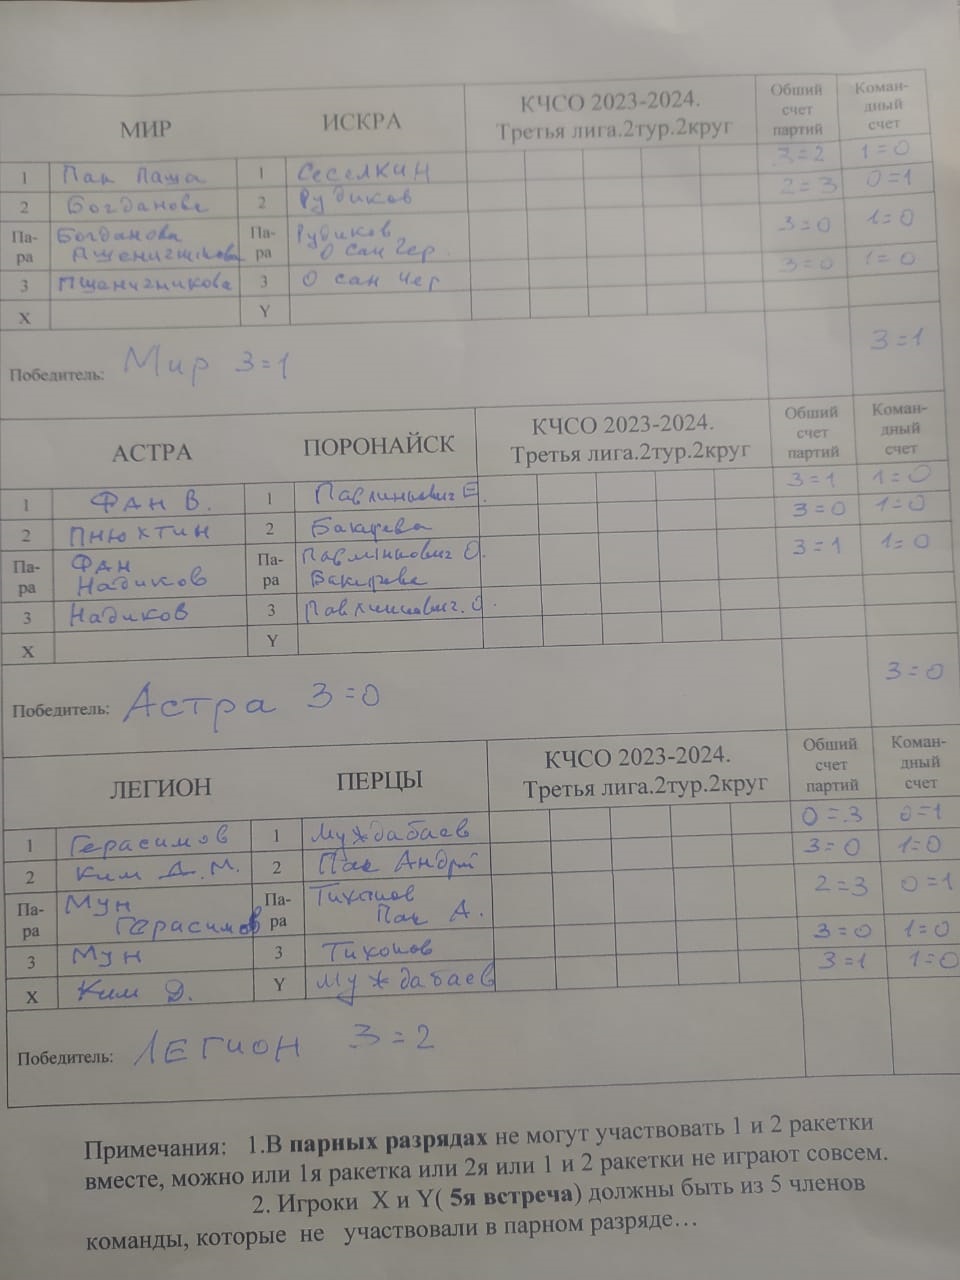 МИР ИСКРА КЧСО 2023-2024. Третья лига.2тур.2круг Общий счет партий Коман-дный счет
1 Пак Паша 1 Сеселкин 3=2 1=0
2 Богданова 2 Рудиков 2=3 0=1
Па-ра Богданова Па-ра Рудиков 3=0 1=0
Пшенишникова О сан Чер
3 Пшаничникова 3 О сан Чер 3=0 1=0
X Y
Победитель: Мир 3=1 3=1
АСТРА ПОРОНАЙСК КЧСО 2023-2024. Третья лига.2тур.2круг Общий счет партий Коман-дный счет
1 Фан В. 1 Павлинович Е. 3=1 1=0
2 Пнюхтин 2 Бакаева 3=0 1=0
Па-ра Фан Па-ра О. 3=1 1=0
Надиков
3 Надиков 3 О.
X Y
Победитель: Астра 3=0 3=0
ЛЕГИОН ПЕРЦЫ КЧСО 2023-2024. Третья лига.2тур.2круг Общий счет партий Коман-дный счет
1 Герасимов 1 Муждабаев 0=3 0=1
2 Ким Д.М. 2 Пак Андрй 3=0 1=0
Па-ра Мун Па-ра Тихонов 2=3 0=1
Герасимов Пак А.
3 Мун 3 Тихонов 3=0 1=0
X Ким Д. Y Муждабаев 3=1 1=0
Победитель: ЛЕГИОН 3=2
Примечания: 1.В парных разрядах не могут участвовать 1 и 2 ракетки
вместе, можно или 1я ракетка или 2я или 1 и 2 ракетки не играют совсем.
2. Игроки X и Y( 5я встреча) должны быть из 5 членов
команды, которые не участвовали в парном разряде…